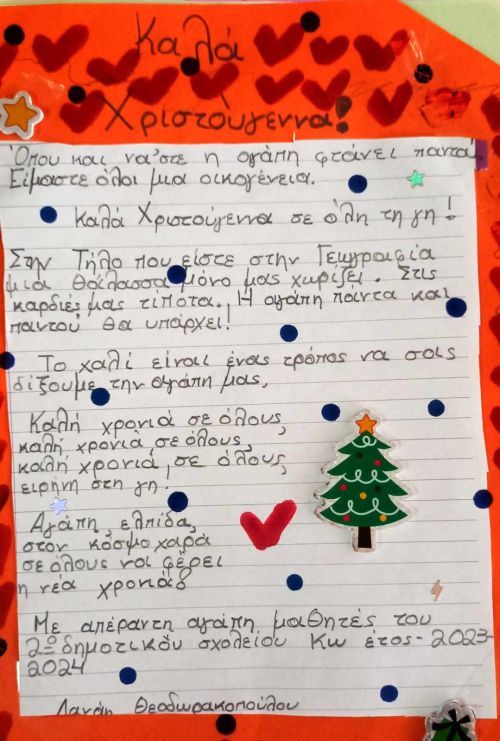 Καλά
Χριστούγεννα!
Όπου και να'στε η αγάπη φτάνει παντά
Είμαστε όλοι μια οικογένεια.
Καλά Χριστούγεννα σε όλη τη γη!
Στην Τήλο που είστε στην Γεωγραφία
μιά θάλασσα μόνο μας χωρίζει. Στις
καρδιές μας τίποτα. Η αγάπη πάντα και
παντού θα υπάρχει!
Το χαλί είναι ένας τρόπος να σας
δίξουμε την αγάπη μας,
Καλή χρονιά σε όλους,
καλή χρονιά σε όλους,
καλή χρονιά, σε όλους,
ειρήνη στη γη!
Αγάπη, ελπίδα,
στον κόσμο χαρά
σε όλους να φέρει
η νέα χρονιά
Με απέραντη αγάπη μαθητές του
2ο δημοτικού σχολείου Κω έτος-2023-
2024
Δανάη Θεοδωρακοπούλου